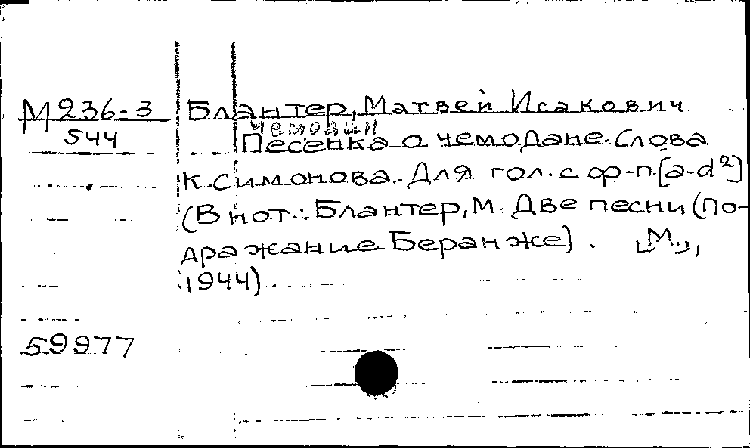 М 236-3
544
Блантер, Матвей Исакович
Чемодан
Песенка о чемодане. Слова
К. Симонова. Для гол. с ф-п. [a-d²]
(В нот.: Блантер, М. Две песни (По-
дражание Беранже). М.,
1944).
59977